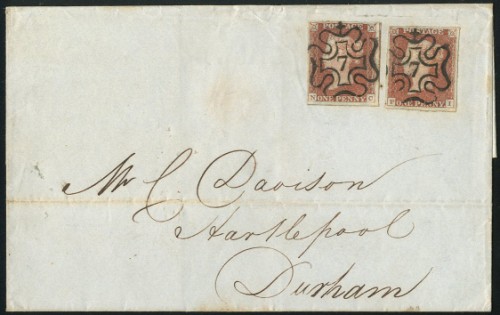 POSTAGE POSTAGE
7 7
N ONE PENNY C ONE PENNY
Mr C Davison
Hartlepool
Durham